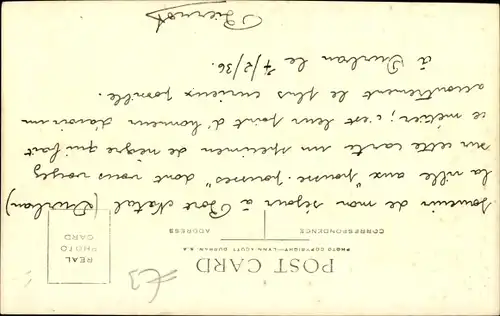 POST CARD
PHOTO COPYRIGHT—LYNN ACUTT DURBAN S.A.
CORRESPONDENCE
ADDRESS
REAL
PHOTO
CARD
Souvenir de mon séjour à Port Natal (Durban)
la ville aux "pousse-pousses" dont vous voyez
sur cette carte un spécimen de nègre qui fait
ce métier; c'est leur point d'honneur d'avoir un
accoutrement le plus curieux possible.
à Durban le 7/2/36.